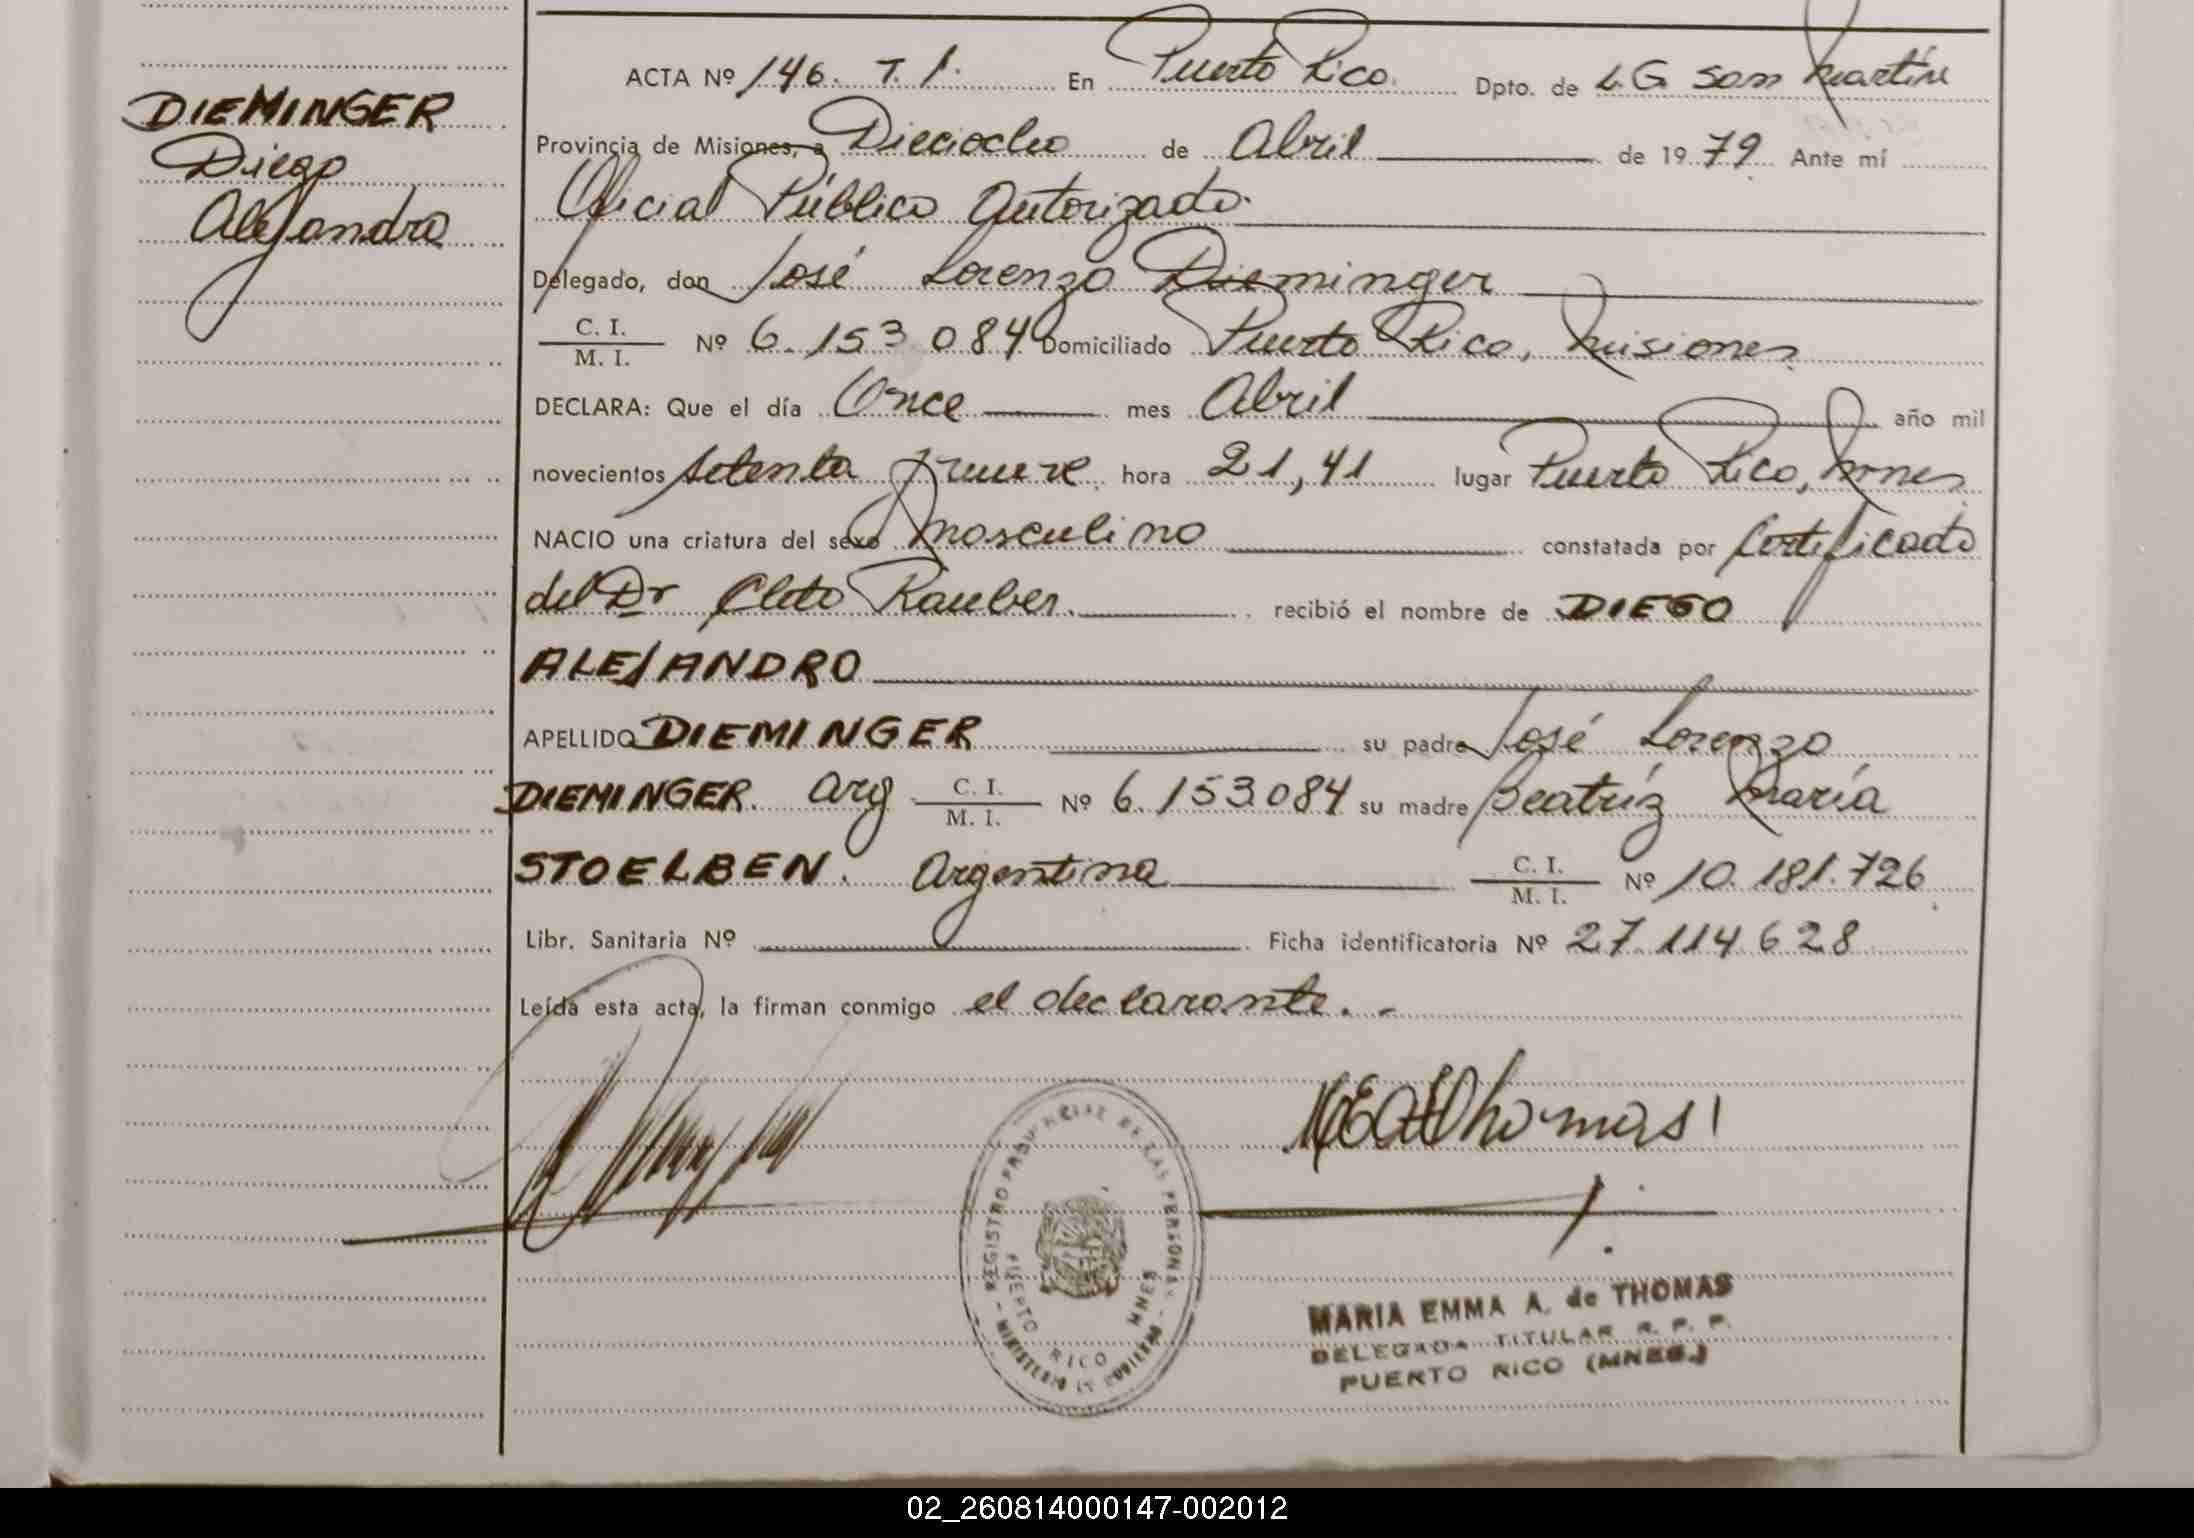 DIEMINGER
Diego
Alejandro
ACTA Nº 146. T. I. En Puerto Rico. Dpto. de L. G. San Martín
Provincia de Misiones, a Dieciocho de Abril de 1979 Ante mí
Oficial Público Autorizado.
Delegado, don José Lorenzo Dieminger
C. I. / M. I. Nº 6.153.084 Domiciliado Puerto Rico, Misiones
DECLARA: Que el día Once mes Abril año mil
novecientos setenta y nueve hora 21,41 lugar Puerto Rico, Mnes
NACIO una criatura del sexo masculino constatada por Certificado
del Dr Cleto Rauber. recibió el nombre de DIEGO
ALEJANDRO
APELLIDO DIEMINGER su padre José Lorenzo
DIEMINGER. Arg C. I. / M. I. Nº 6.153.084 su madre Beatríz María
STOELBEN. Argentina C. I. / M. I. Nº 10.181.726
Libr. Sanitaria Nº Ficha identificatoria Nº 27.114.628
Leída esta acta, la firman conmigo el declarante. -
REGISTRO PROVINCIAL DE LAS PERSONAS
MINISTERIO DE GOBIERNO
PUERTO RICO MNES
MARIA EMMA A. de THOMAS
DELEGADA TITULAR R. P. P.
PUERTO RICO (MNES.)
02_260814000147-002012